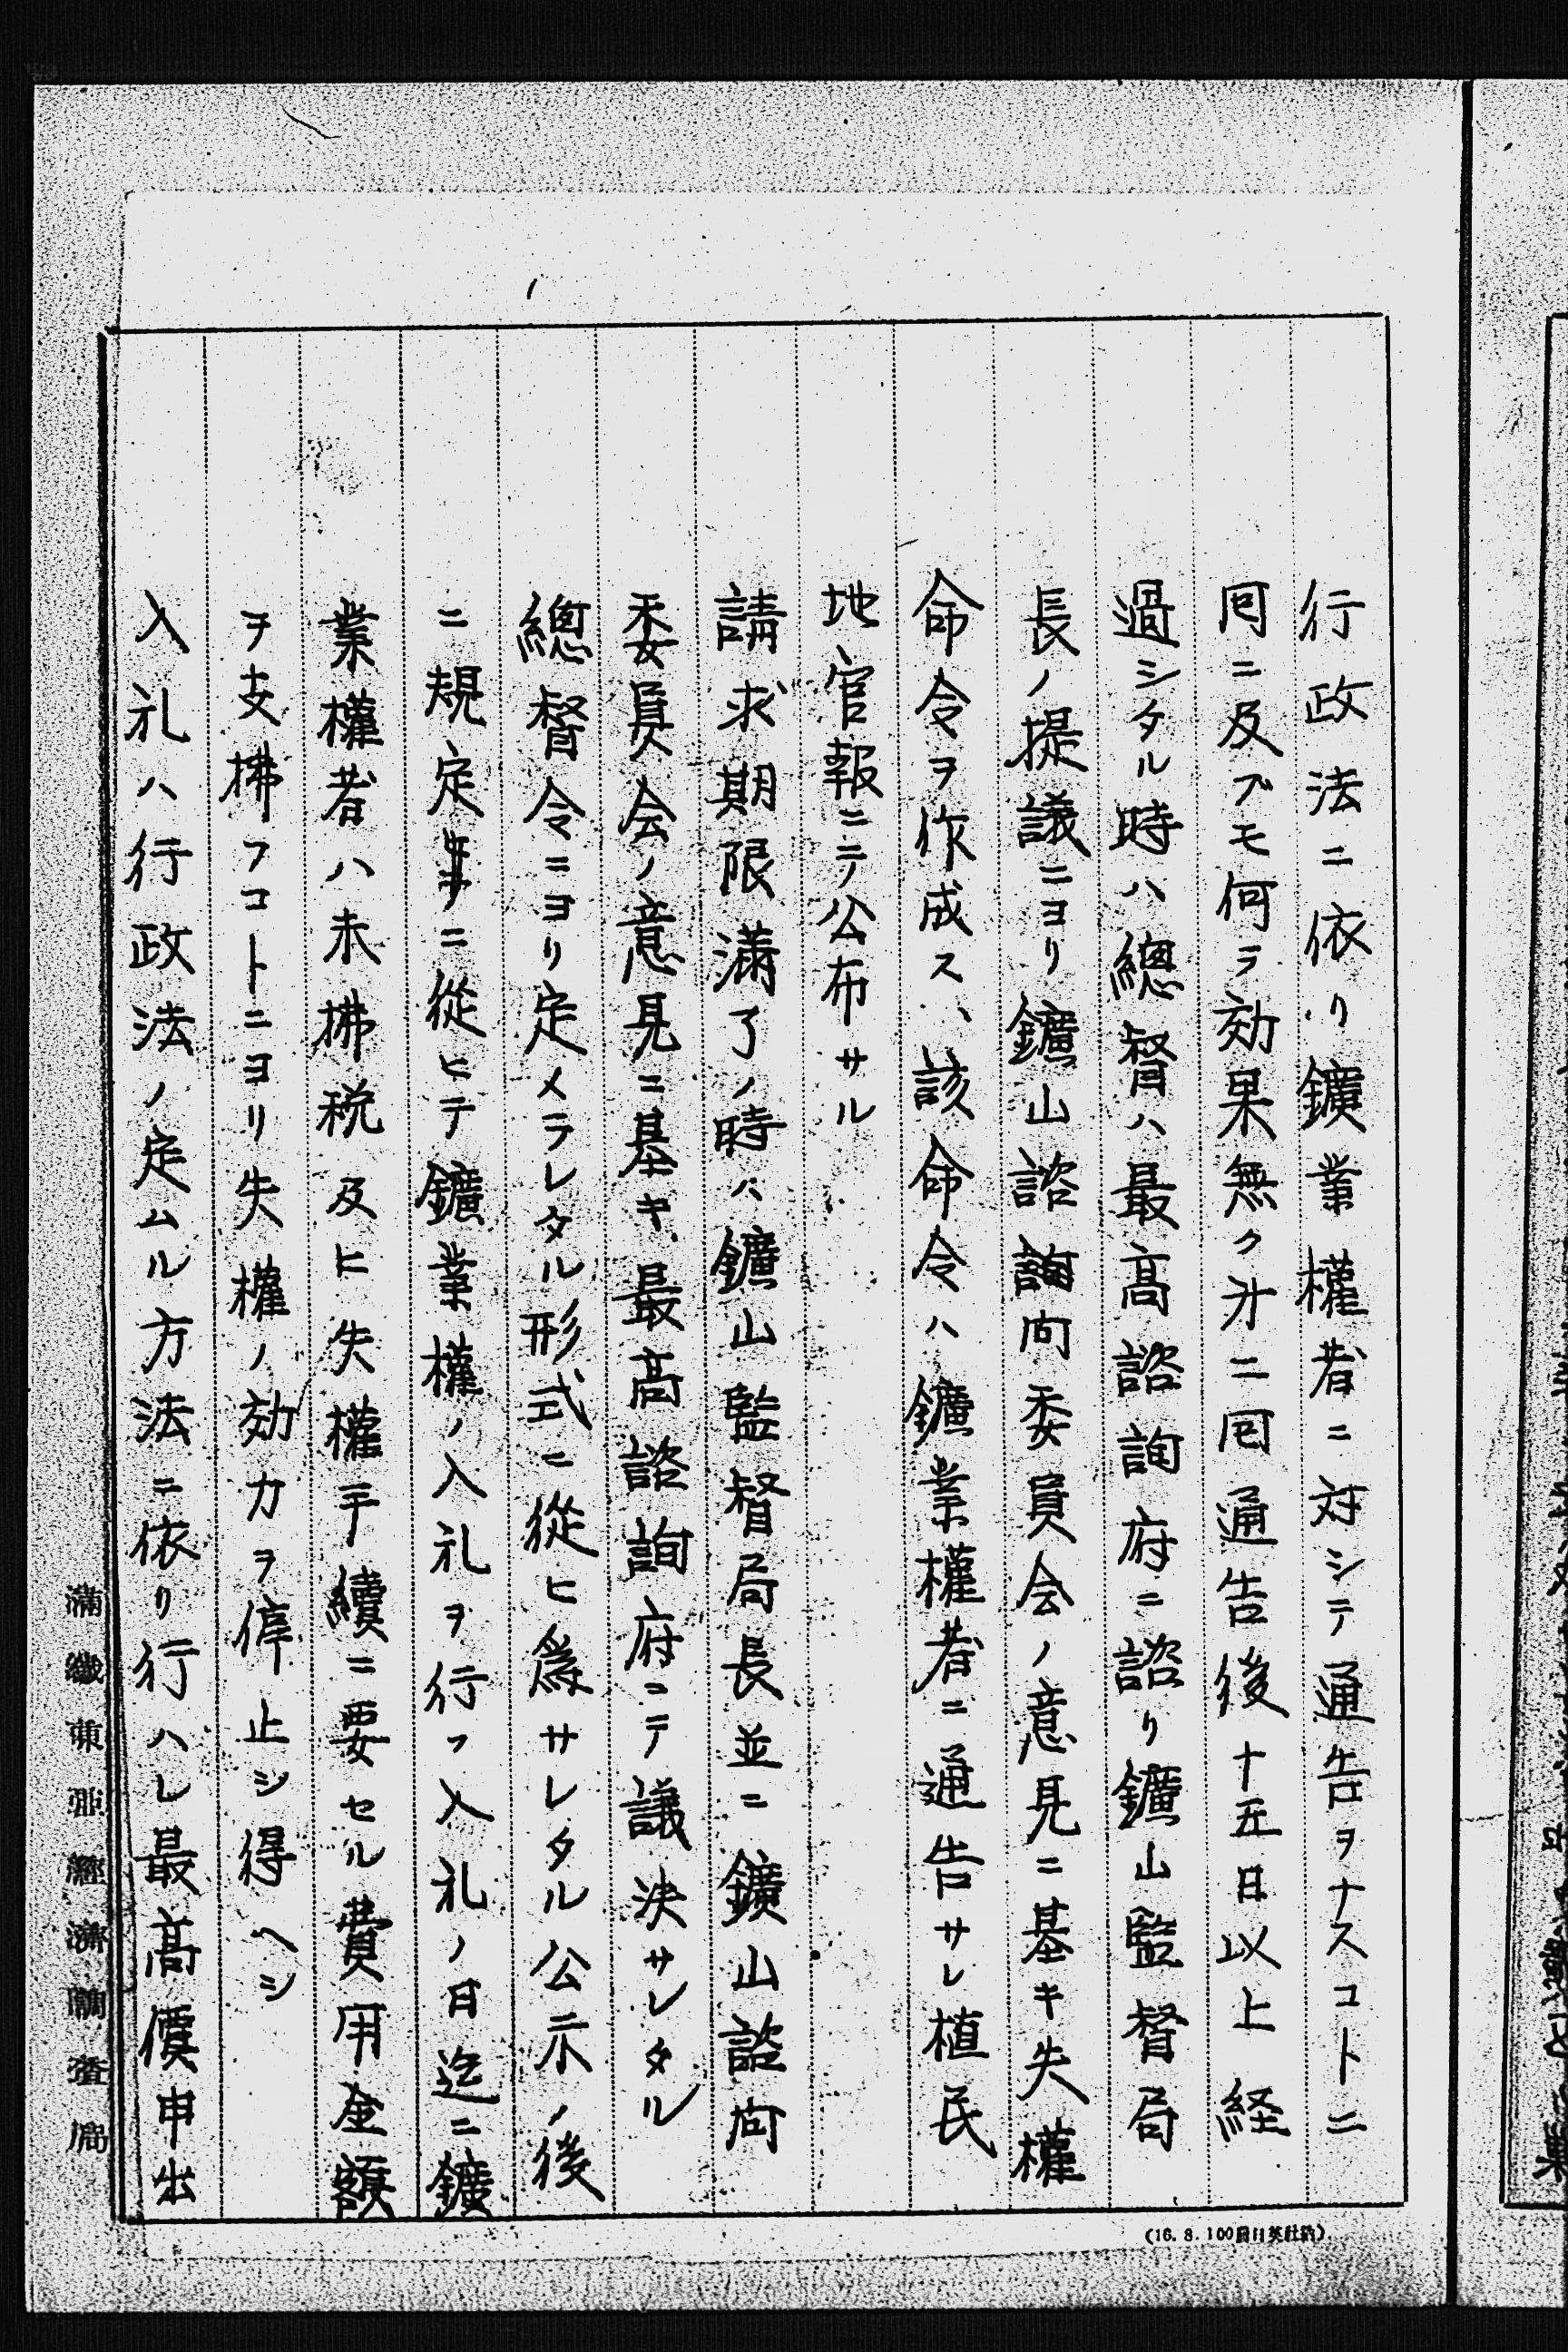 行政法ニ依リ鑛業權者ニ対シテ通告ヲナスコトニ
囘ニ及ブモ何ラ効果無ク才ニ囘通告後十五日以上経
過シタル時ハ總督ハ最高諮詢府ニ諮リ鑛山監督局
長ノ提議ニヨリ鑛山諮詢向委員会ノ意見ニ基キ失權
命令ヲ作成ス、該命令ハ鑛業權者ニ通告サレ植民
地官報ニテ公布サル
請求期限滿了ノ時ハ鑛山監督局長並ニ鑛山諮向
委員会ノ意見ニ基キ、最高諮詢府ニテ議決サレタル
總督令ニヨリ定メラレタル形式ニ從ヒ爲サレタル公示ノ後
ニ規定ニ從ヒテ鑛業權ノ入札ヲ行フ入札ノ日迄ニ鑛
業權者ハ未拂税及ヒ失權手續ニ要セル費用金額
ヲ支拂フコトニヨリ失權ノ効力ヲ停止シ得ヘシ
入札ハ行政法ノ定ムル方法ニ依リ行ハレ最高價申出
滿鐵東亞經濟調査局
(16. 8. 100 日英社納)